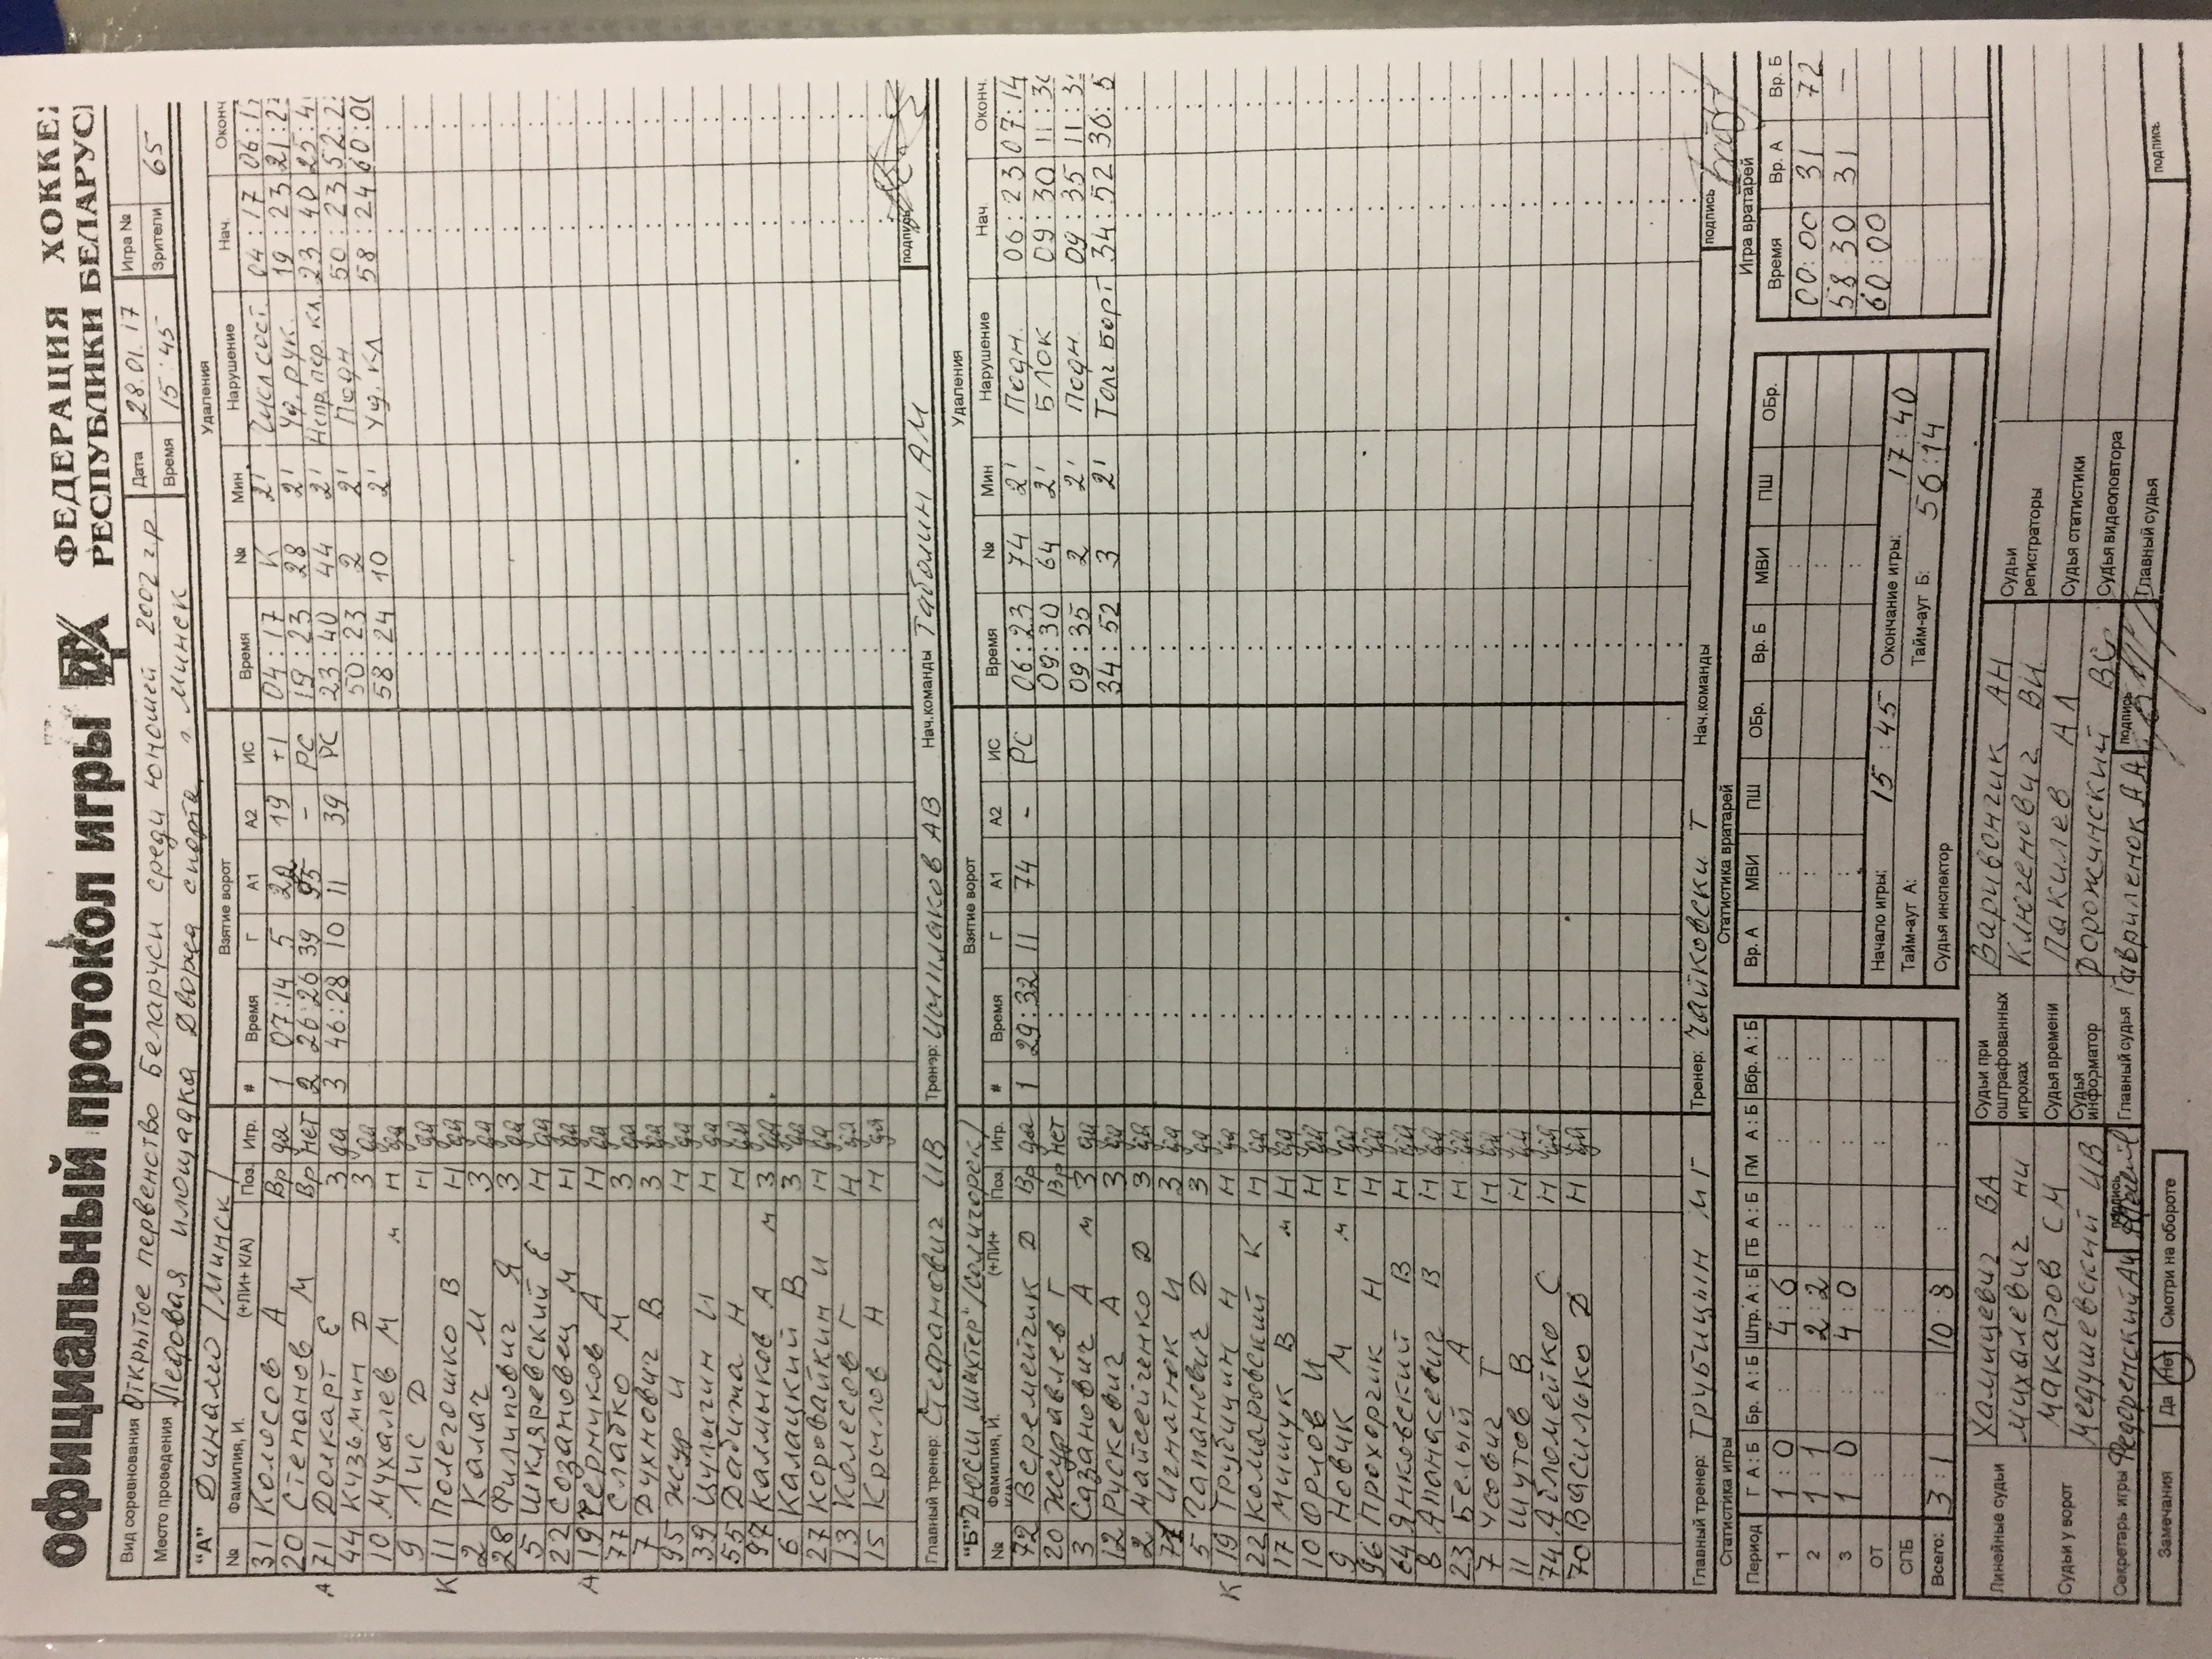 официальный протокол игры
ФЕДЕРАЦИЯ ХОККЕ
РЕСПУБЛИКИ БЕЛАРУС
Вид соревнования Открытое первенство Беларуси среди юношей 2002 г.р Дата 28.01.17 Игра №
Место проведения Ледовая площадка Дворца спорта г Минск Время 15:45 Зрители 65
"А" Динамо /Минск/ Взятие ворот Удаления
№ Фамилия, И. (+ЛИ+ К/А) Поз. Игр. # Время Г А1 А2 ИС Время № Мин Нарушение Нач. Оконч
31 Колосов А Вр да 1 07:14 5 19 +1 04:17 К 2' Числ сост. 04:17 06:17
20 Степанов М Вр нет 2 26:26 39 95 - РС 19:23 28 2' Уд. рук. 19:23 21:2
А 71 Долкарт Е З да 3 46:28 10 11 39 РС 23:40 44 2' Непр.пер.кл. 23:40 25:4
44 Кузьмин Д З да 50:23 2 2' Подн 50:23 52:2
10 Мухалев М м Н да 58:24 10 2' Уд. кл 58:24 60:00
9 Лис D Н да
К 11 Полегошко В Н да
2 Калач М З да
28 Филипович Я З да
5 Шкляревский Е Н да
22 Созановец М Н да
А 19 Терничков А Н да
77 Сладко М З да
7 Духнович В З да
95 Жсур И Н да
39 Цулыгин И Н да
55 Дадима Н Н да
97 Калмыков А м З да
6 Калацкий В З да
27 Коровайкин И Н да
13 Колесов Г Н да
15 Крылов Н Н да
Главный тренер: Стефанович ИВ Тренер: Цыплаков АВ Нач.команды Таболин АМ подпись
"Б" ДЮСШ "Шахтер" /Солигорск/ Взятие ворот Удаления
№ Фамилия, И. (+ЛИ+ Поз. Игр. # Время Г А1 А2 ИС Время № Мин Нарушение Нач. Оконч.
72 Веремейчик D Вр да 1 29:32 11 74 - РС 06:23 74 2' Подн. 06:23 07:14
20 Журавлев Г Вр нет 09:30 64 2' Блок 09:30 11:30
3 Сазанович А м З да 09:35 2 2' Подн. 09:35 11:3
12 Рускевич А З да 34:52 3 2' Толч борт 34:52 36:5
2 Майсейченко D З да
Игнатюк И З да
5 Папанович D З да
К 19 Трубицин Н Н да
22 Комаровский К Н да
17 Мишук В м Н да
10 Орлов И Н да
9 Новик М м Н да
96 Прохорчик Н Н да
64 Янковский В Н да
8 Апанасевич В Н да
23 Белый А Н да
7 Усович Т Н да
11 Шутов В Н да
74 Айломейко С Н да
70 Василько D Н да
Главный тренер: Трубицын МГ Тренер: Чайковски Т Нач.команды подпись
Статистика игры Статистика вратарей Игра вратарей
Период Г А:Б Бр. А:Б Штр. А:Б ГБ А:Б ГМ А:Б Вбр. А:Б Вр. А МВИ ПШ ОБр. Вр. Б МВИ ПШ ОБр. Время Вр. А Вр. Б
1 1:0 4:6 00:00 31 72
2 1:1 2:2 58 30 31 —
3 1:0 4:0 60:00
ОТ Начало игры: 15:45 Окончание игры: 17:40
СПБ Тайм-аут А: Тайм-аут Б: 56:14
Всего: 3:1 10:8 Судья инспектор
Линейные судьи Хамицевич ВА Судьи при оштрафованных игроках Варивончик АН Судьи регистраторы
Михалевич НИ Клюгенович ВИ
Судьи у ворот Макаров СМ Судья времени Пакилев АЛ Судья статистики
Медушевский ИВ Судья информатор Дорожинский ВС Судья видеоповтора
Секретарь игры подпись Главный судья Гавриленок АА подпись Главный судья подпись
Замечания Да Нет Смотри на обороте